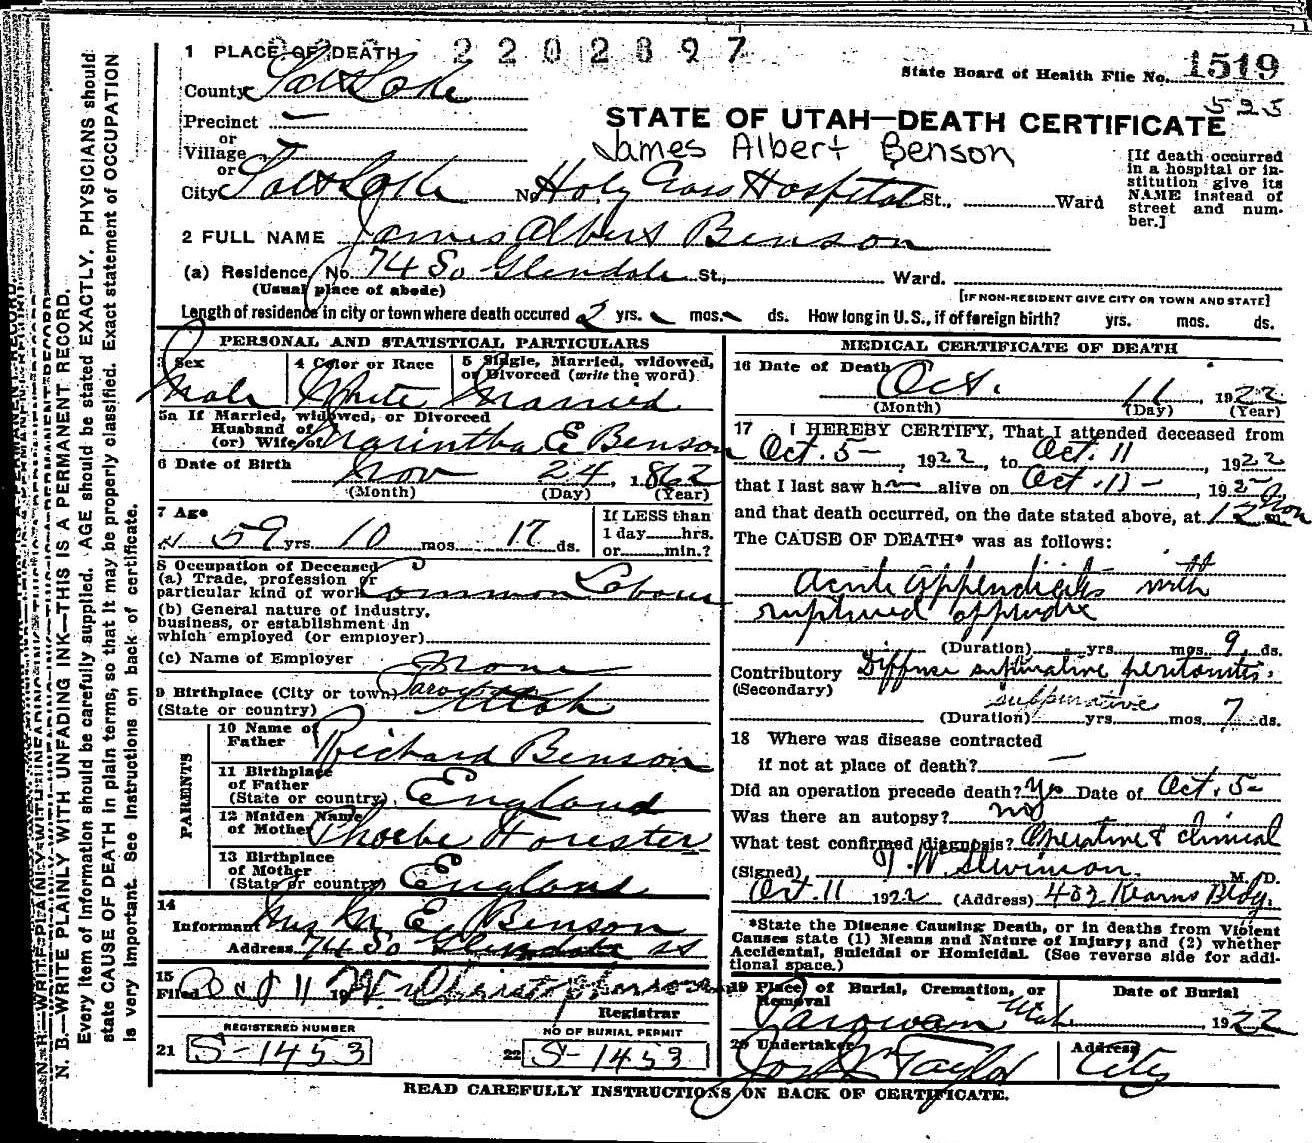 2202897
1 PLACE OF DEATH
State Board of Health File No. 1519
525
County Salt Lake
Precinct —
or
Village
or
City Salt Lake No Holy Cross Hospital St., Ward
STATE OF UTAH—DEATH CERTIFICATE
James Albert Benson
[If death occurred
in a hospital or in-
stitution give its
NAME instead of
street and num-
ber.]
2 FULL NAME James Albert Benson
(a) Residence No. 74 So Glendale St., Ward.
(Usual place of abode)
[IF NON-RESIDENT GIVE CITY OR TOWN AND STATE]
Length of residence in city or town where death occured 2 yrs. mos. ds. How long in U. S., if of foreign birth? yrs. mos. ds.
PERSONAL AND STATISTICAL PARTICULARS
3 Sex
Male
4 Color or Race
White
5 Single, Married, widowed,
or Divorced (write the word)
Married
5a If Married, widowed, or Divorced
Husband of
(or) Wife of Marintha E Benson
6 Date of Birth
Nov 24, 1862
(Month) (Day) (Year)
7 Age
59 yrs. 10 mos. 17 ds.
If LESS than
1 day hrs.
or min.?
8 Occupation of Deceased
(a) Trade, profession or
particular kind of work Common Labour
(b) General nature of industry,
business, or establishment in
which employed (or employer)
(c) Name of Employer None
9 Birthplace (City or town) Parowan
(State or country) Utah
PARENTS
10 Name of
Father Richard Benson
11 Birthplace
of Father
(State or country) England
12 Maiden Name
of Mother Phoebe Forester
13 Birthplace
of Mother
(State or country) England
14
Informant Mrs M. E. Benson
Address 74 So Glendale st
15
Filed Oct 11 19 W. Christopherson
Registrar
REGISTERED NUMBER
21 S-1453
NO OF BURIAL PERMIT
22 S-1453
MEDICAL CERTIFICATE OF DEATH
16 Date of Death Oct. 11, 1922
(Month) (Day) (Year)
17 I HEREBY CERTIFY, That I attended deceased from
Oct. 5 -, 1922, to Oct. 11, 1922
that I last saw h alive on Oct. 11 -, 192
and that death occurred, on the date stated above, at 12 m
Noon
The CAUSE OF DEATH* was as follows:
acute appendicitis with
ruptured appendix
(Duration) yrs. mos. 9 ds.
Contributory Diffuse supurative peritonitis.
(Secondary)
suppurative
(Duration) yrs. mos. 7 ds.
18 Where was disease contracted
if not at place of death? —
Did an operation precede death? yes Date of Oct. 5-
Was there an autopsy? no
What test confirmed diagnosis? Operative & clinical
(Signed) T. W. Stevenson. M. D.
Oct. 11 1922 (Address) 402 Kearns Bldg.
*State the Disease Causing Death, or in deaths from Violent
Causes state (1) Means and Nature of Injury; and (2) whether
Accidental, Suicidal or Homicidal. (See reverse side for addi-
tional space.)
19 Place of Burial, Cremation, or
Removal
Parowan Utah
Date of Burial
, 1922
20 Undertaker
Jos Wm Taylor
Address
City
READ CAREFULLY INSTRUCTIONS ON BACK OF CERTIFICATE.
N. B.—WRITE PLAINLY WITH UNFADING INK—THIS IS A PERMANENT RECORD.
Every item of information should be carefully supplied. AGE should be stated EXACTLY. PHYSICIANS should
state CAUSE OF DEATH in plain terms, so that it may be properly classified. Exact statement of OCCUPATION
is very important. See instructions on back of certificate.